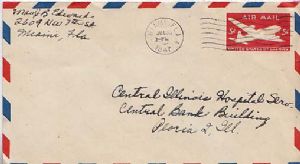 Mary B. Edwards
2609 N.W. 7th St
Miami, Fla
MIAMI, FLA
1947
AIR MAIL
5¢ 5¢
UNITED STATES
Central Illinois Hospital Serv.
Central Bank Building
Peoria 2, Ill.